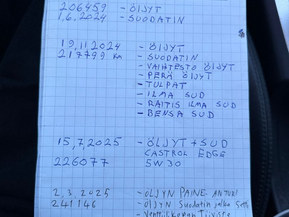 206459 - ÖLJYT
1.6.2024 - SUODATIN
19.11.2024 - ÖLJYT
217799 KM - SUODATIN
- VAIHTEISTO ÖLJYT
- PERÄ ÖLJYT
- TULPAT
- ILMA SUD
- RAITIS ILMA SUD
- BENSA SUD
15.7.2025 - ÖLJYT + SUD
CASTROL EDGE
226077 5W30
2.3.2025 - ÖLJYN PAINE ANTURI
241146 - Öljy Suodatin jalka